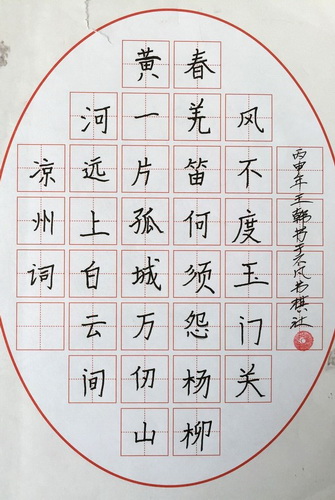 凉州词
黄河远上白云间
一片孤城万仞山
羌笛何须怨杨柳
春风不度玉门关
丙申年王韩书于风书棋社